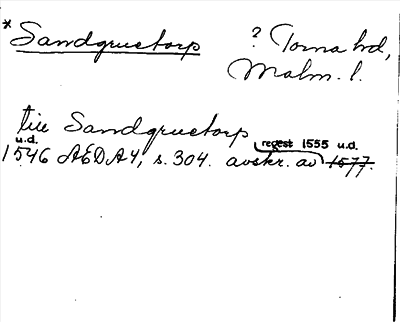 * Sandgruetorp ? Torna hd,
Malm. l.
till Sandgruetorp
u.d. regest 1555 u.d.
1546 ÆDA 4, s. 304. avskr. av 1577.